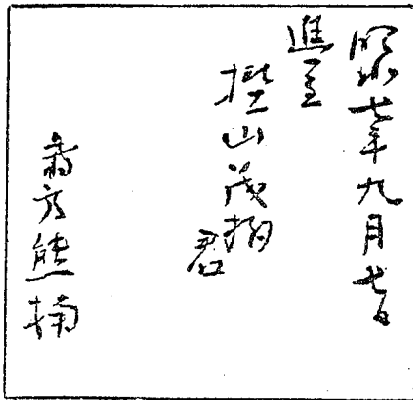 昭和七年九月七日
進呈
樫山茂
君
南方熊楠